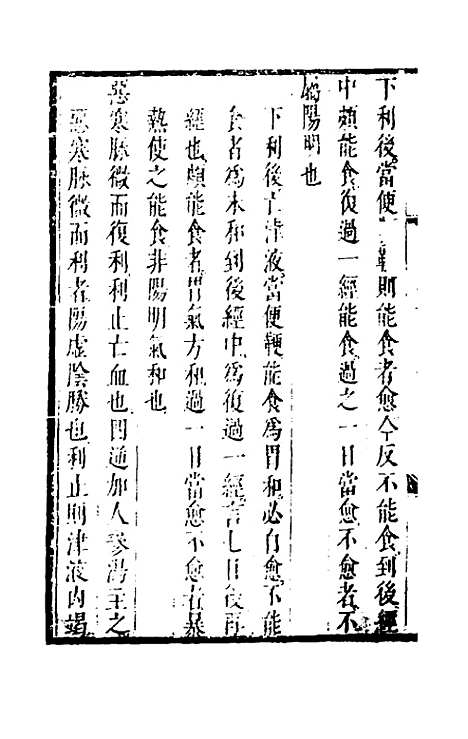 下利後當便鞕則能食者愈今反不能食到後經
中頗能食復過一經能食過之一日當愈不愈者不
屬陽明也
下利後亡津液當便鞕能食爲胃和必自愈不能
食者爲未和到後經中爲復過一經言七日後再
經也頗能食者胃氣方和過一日當愈不愈者暴
熱使之能食非陽明氣和也
惡寒脉微而復利利止亡血也四逆加人參湯主之
惡寒脉微而利者陽虛陰勝也利止則津液内竭